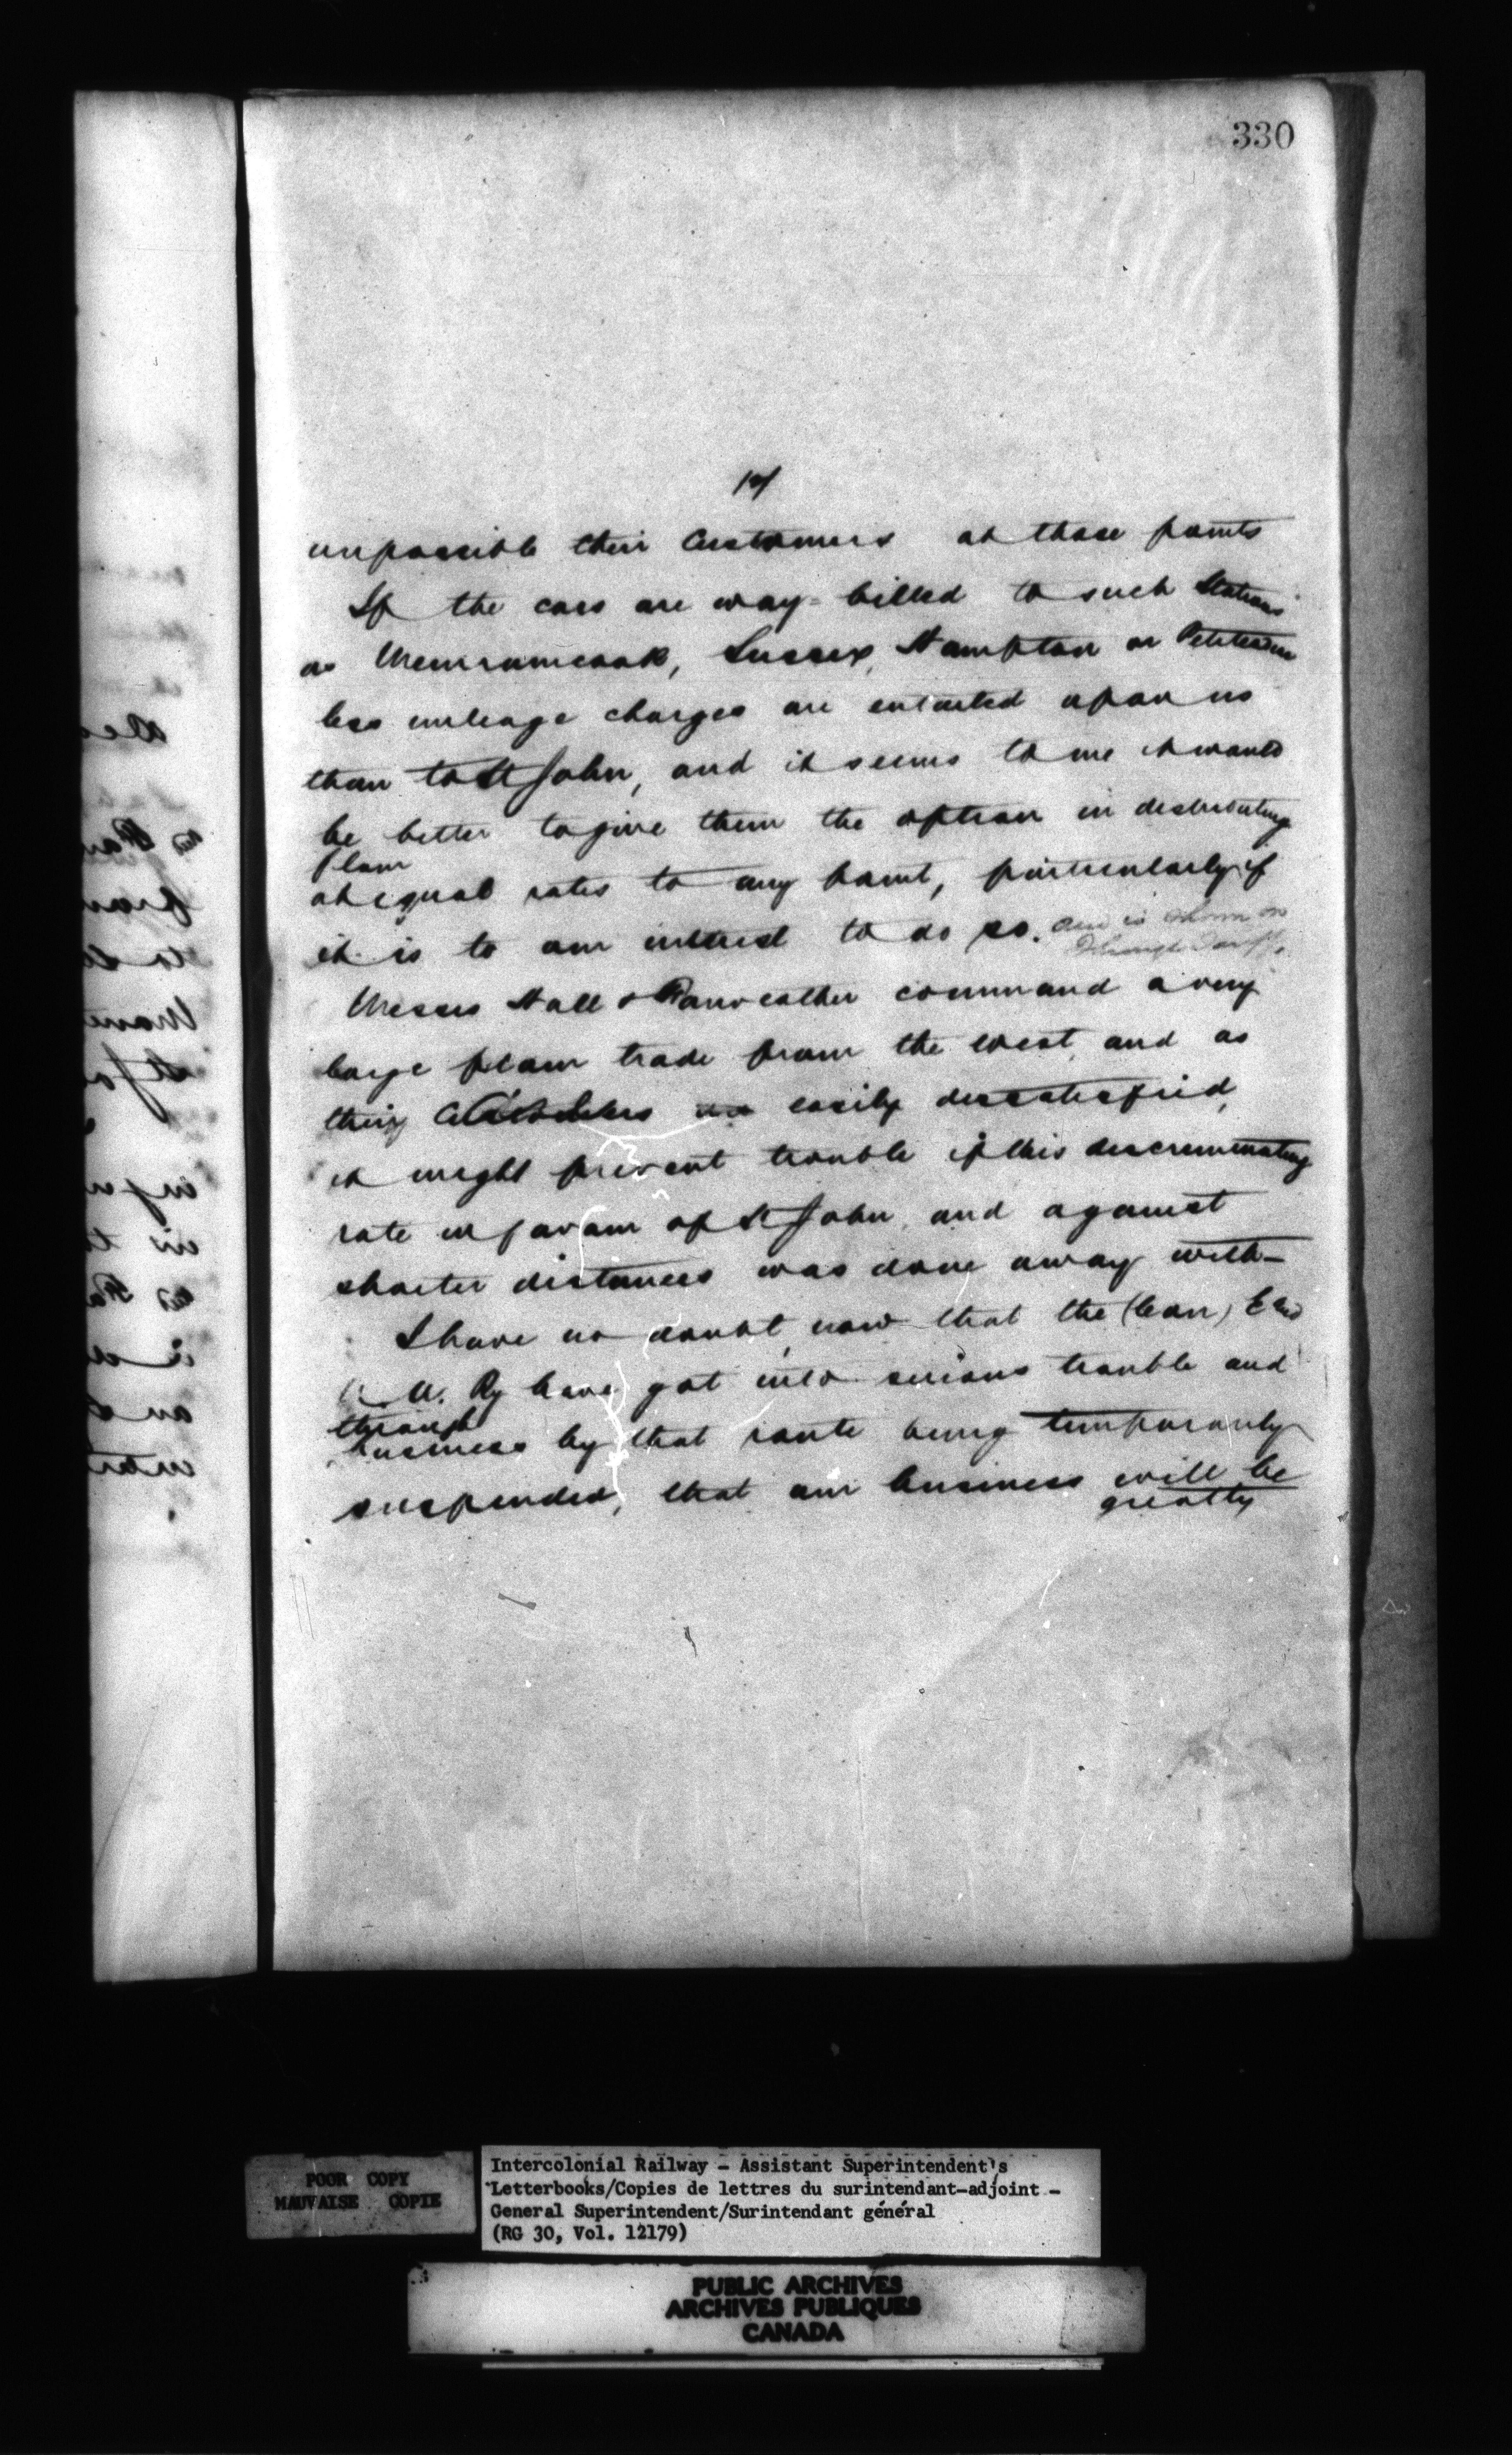 330
impossible their Customers at those points
If the cars are way-billed to such Stations
as Memramcook, Sussex, Hampton or Petitcodiac
less mileage charges are entailed upon us
than to St John, and it seems to me it would
be better to give them the option in distributing
flour
at equal rates to any point, particularly if
it is to our interest to do so. and is shown on
through Tariff.
Messrs Hall & Fairweather command a very
large flour trade from the West, and as
their Customers are easily dissatisfied,
it might prevent trouble if this discriminating
rate in favour of St John, and against
shorter distances was done away with-
I have no doubt, now that the (Con) E &
N. A. Ry have got into serious trouble and
through
business by that route being temporarily
suspended, that our business will be
greatly
POOR COPY
MAUVAISE COPIE
Intercolonial Railway - Assistant Superintendent's
Letterbooks/Copies de lettres du surintendant-adjoint -
General Superintendent/Surintendant général
(RG 30, Vol. 12179)
PUBLIC ARCHIVES
ARCHIVES PUBLIQUES
CANADA